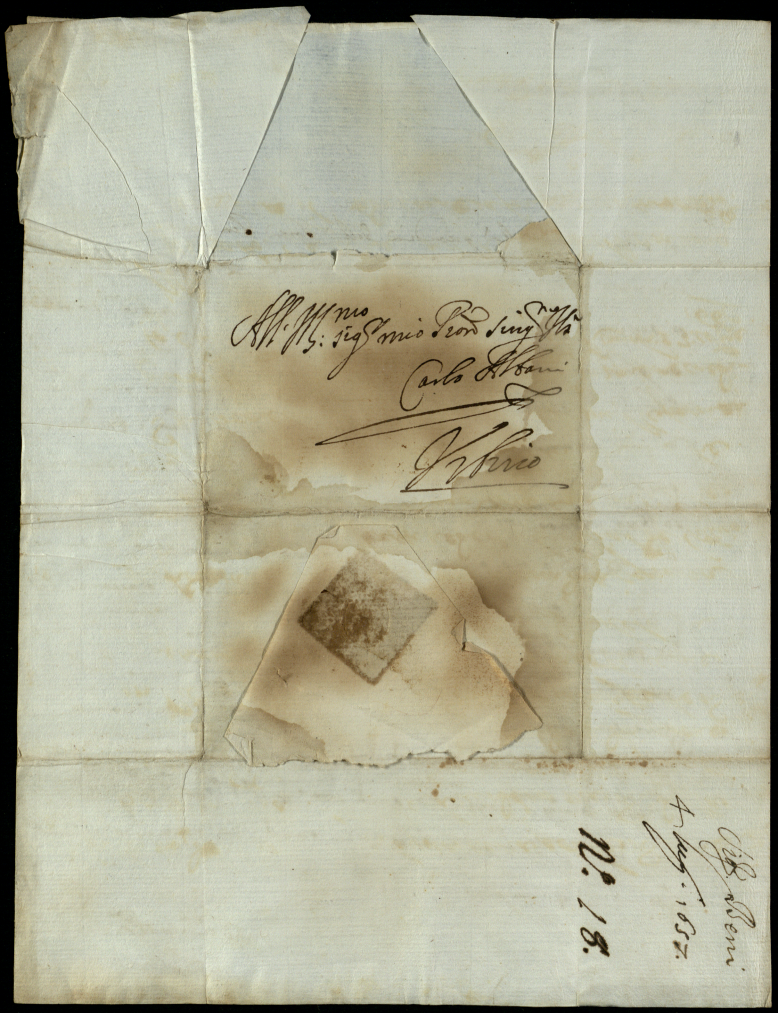 All. Ill.mo
S: Sig.r mio Pron Sing.mo Il S.r
Carlo Albani
Vrbino
Beni
4 lug. 1657.
N.º 18.